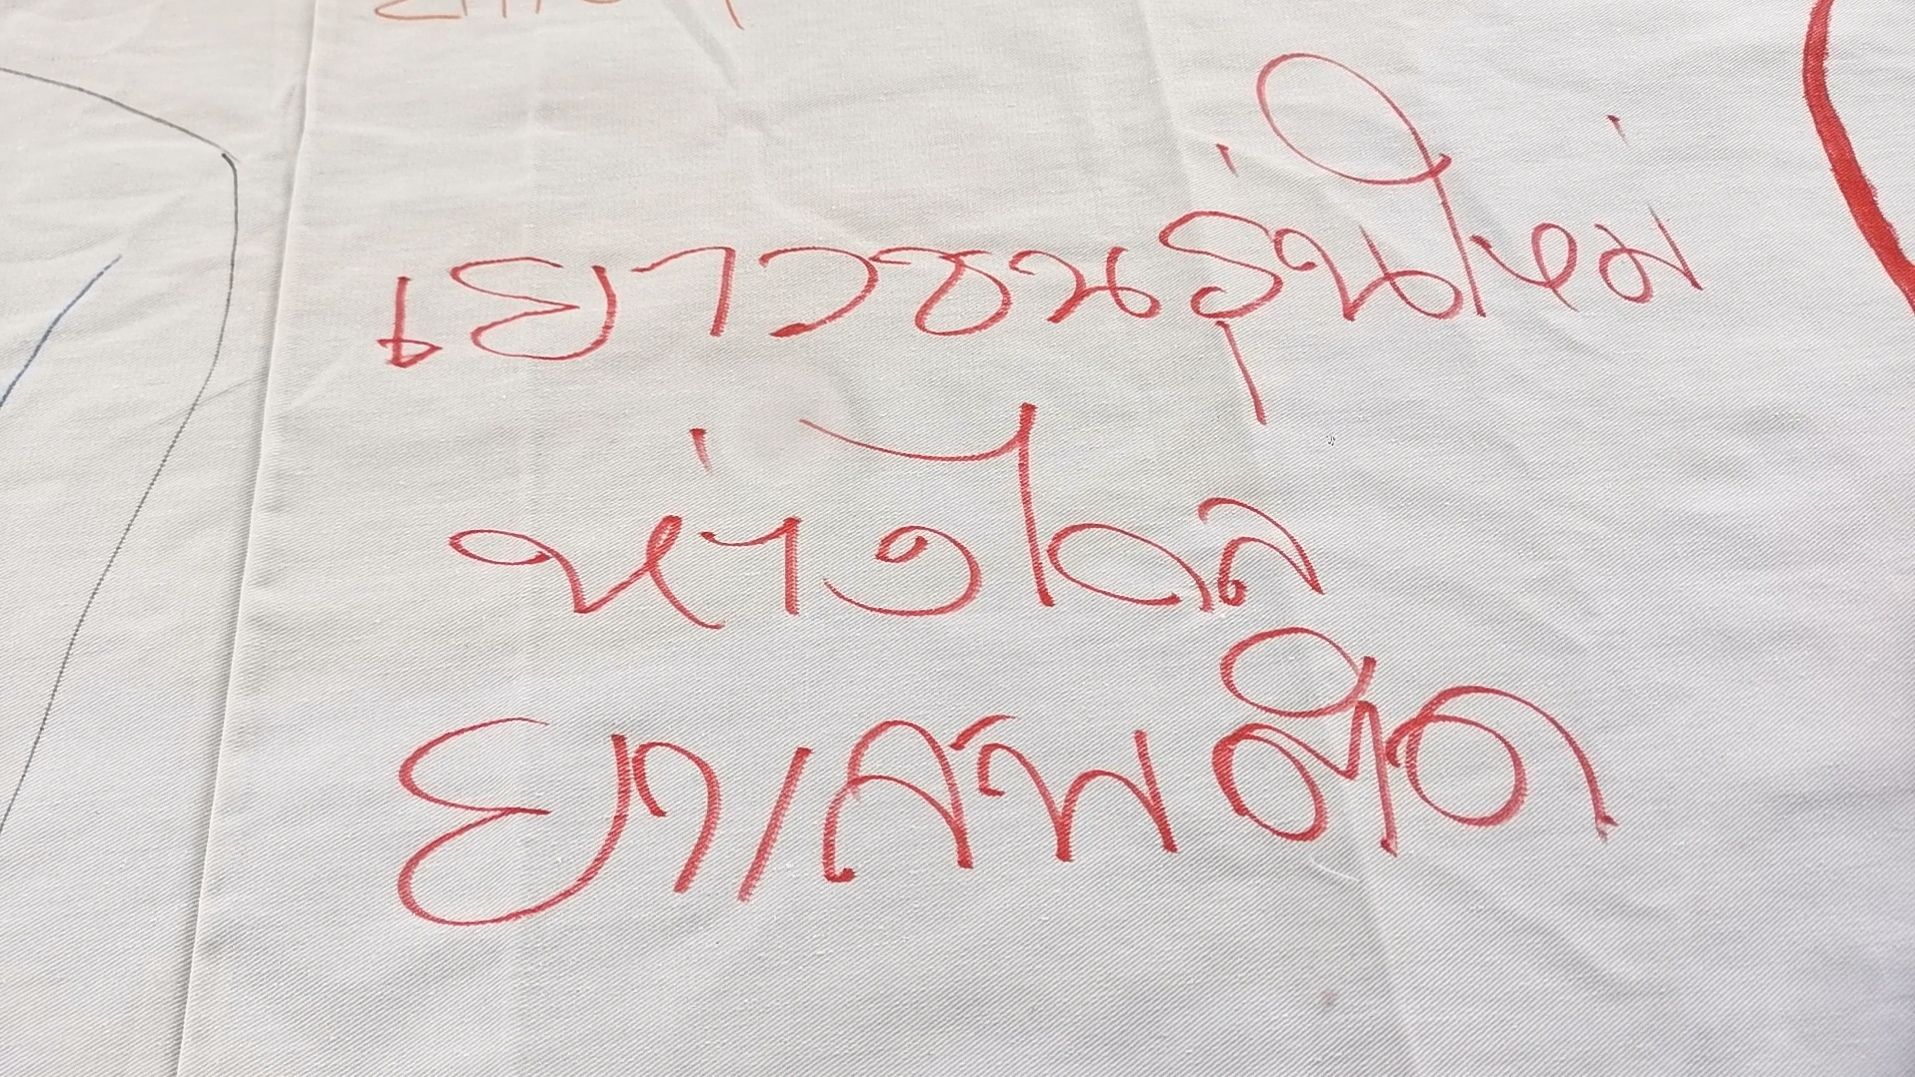 เยาวชนรุ่นใหม่
ห่างไกล
ยาเสพติด